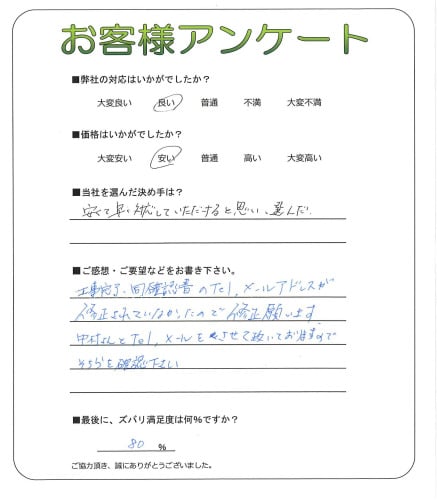 お客様アンケート
■弊社の対応はいかがでしたか？
大変良い 良い 普通 不満 大変不満
■価格はいかがでしたか？
大変安い 安い 普通 高い 大変高い
■当社を選んだ決め手は？
安くて早く対応していただけると思い、選んだ.
■ご感想・ご要望などをお書き下さい。
工事完了 確認書のTel、メールアドレスが
修正されていなかったので修正願います.
中村さんとTel、メールをさせて頂いておりますので
そちらを確認下さい
■最後に、ズバリ満足度は何%ですか？
80 %
ご協力頂き、誠にありがとうございました。